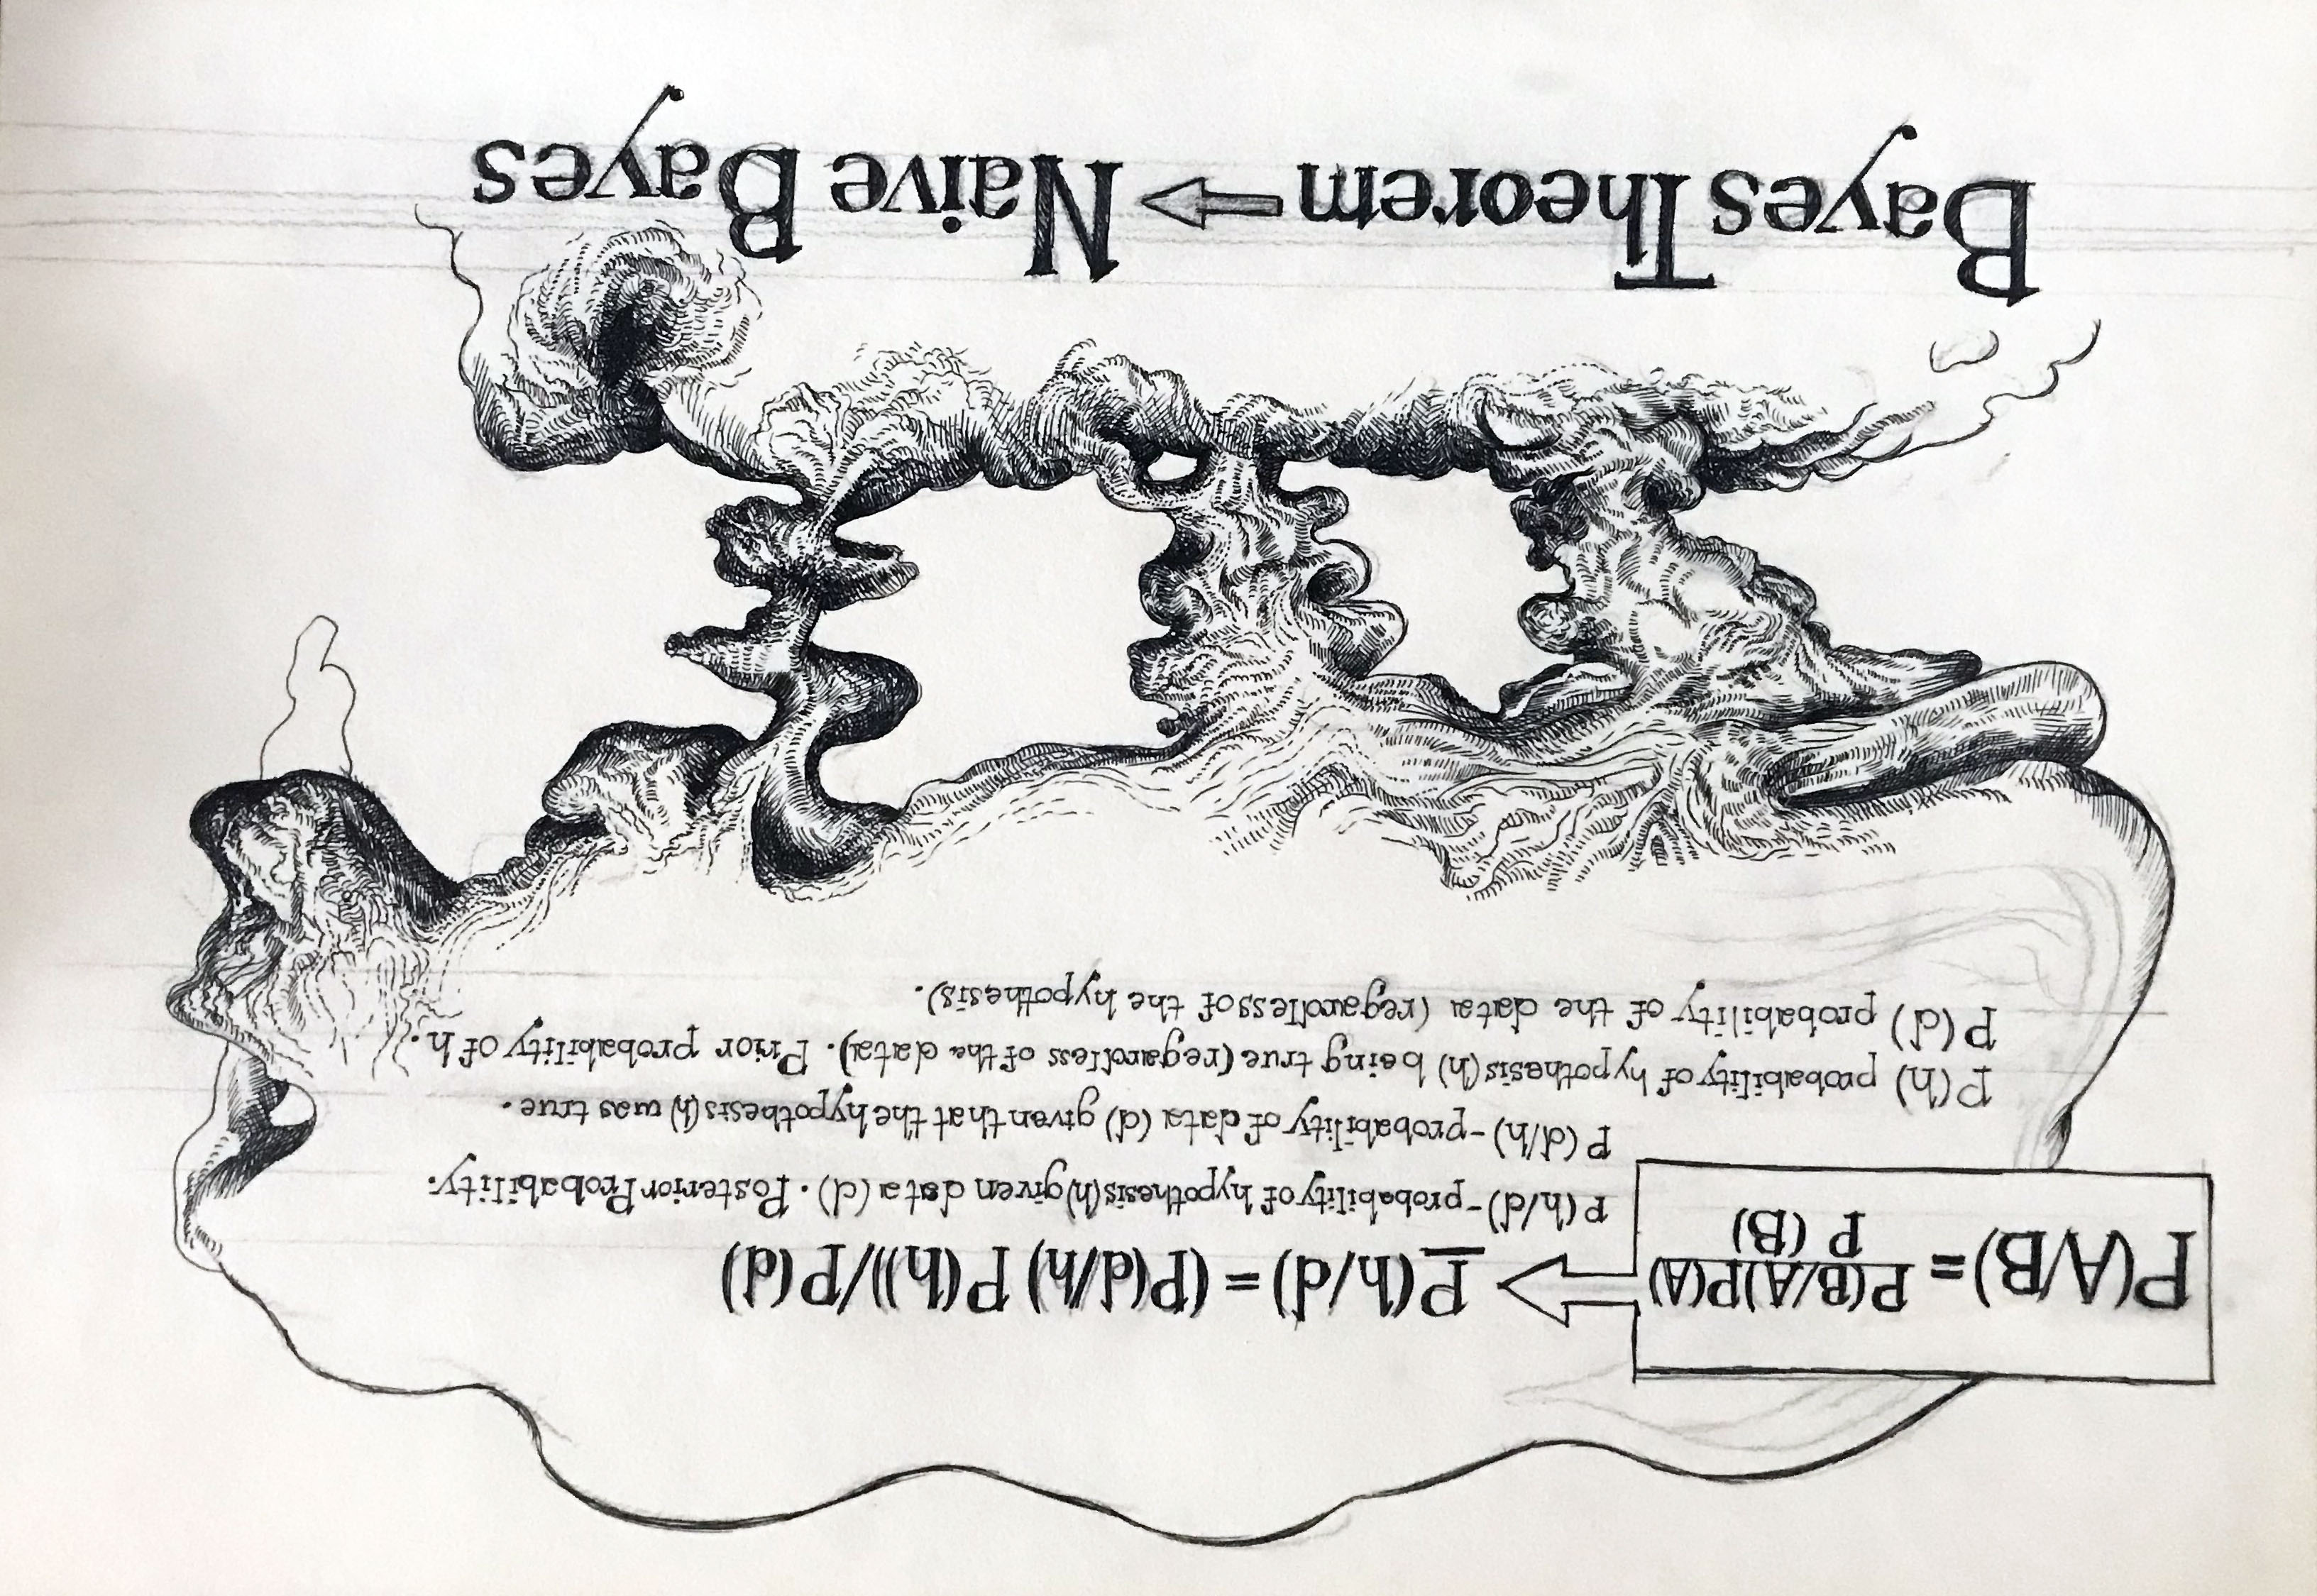 P(A/B) = P(B/A)P(A)
P(B)
P(h/d) = (P(d/h) P(h))/P(d)
P(h/d) - probability of hypothesis (h) given data (d). Posterior Probability.
P(d/h) - probability of data (d) given that the hypothesis (h) was true.
P(h) probability of hypothesis (h) being true (regardless of the data). Prior probability of h.
P(d) probability of the data (regardless of the hypothesis).
Bayes Theorem → Naive Bayes